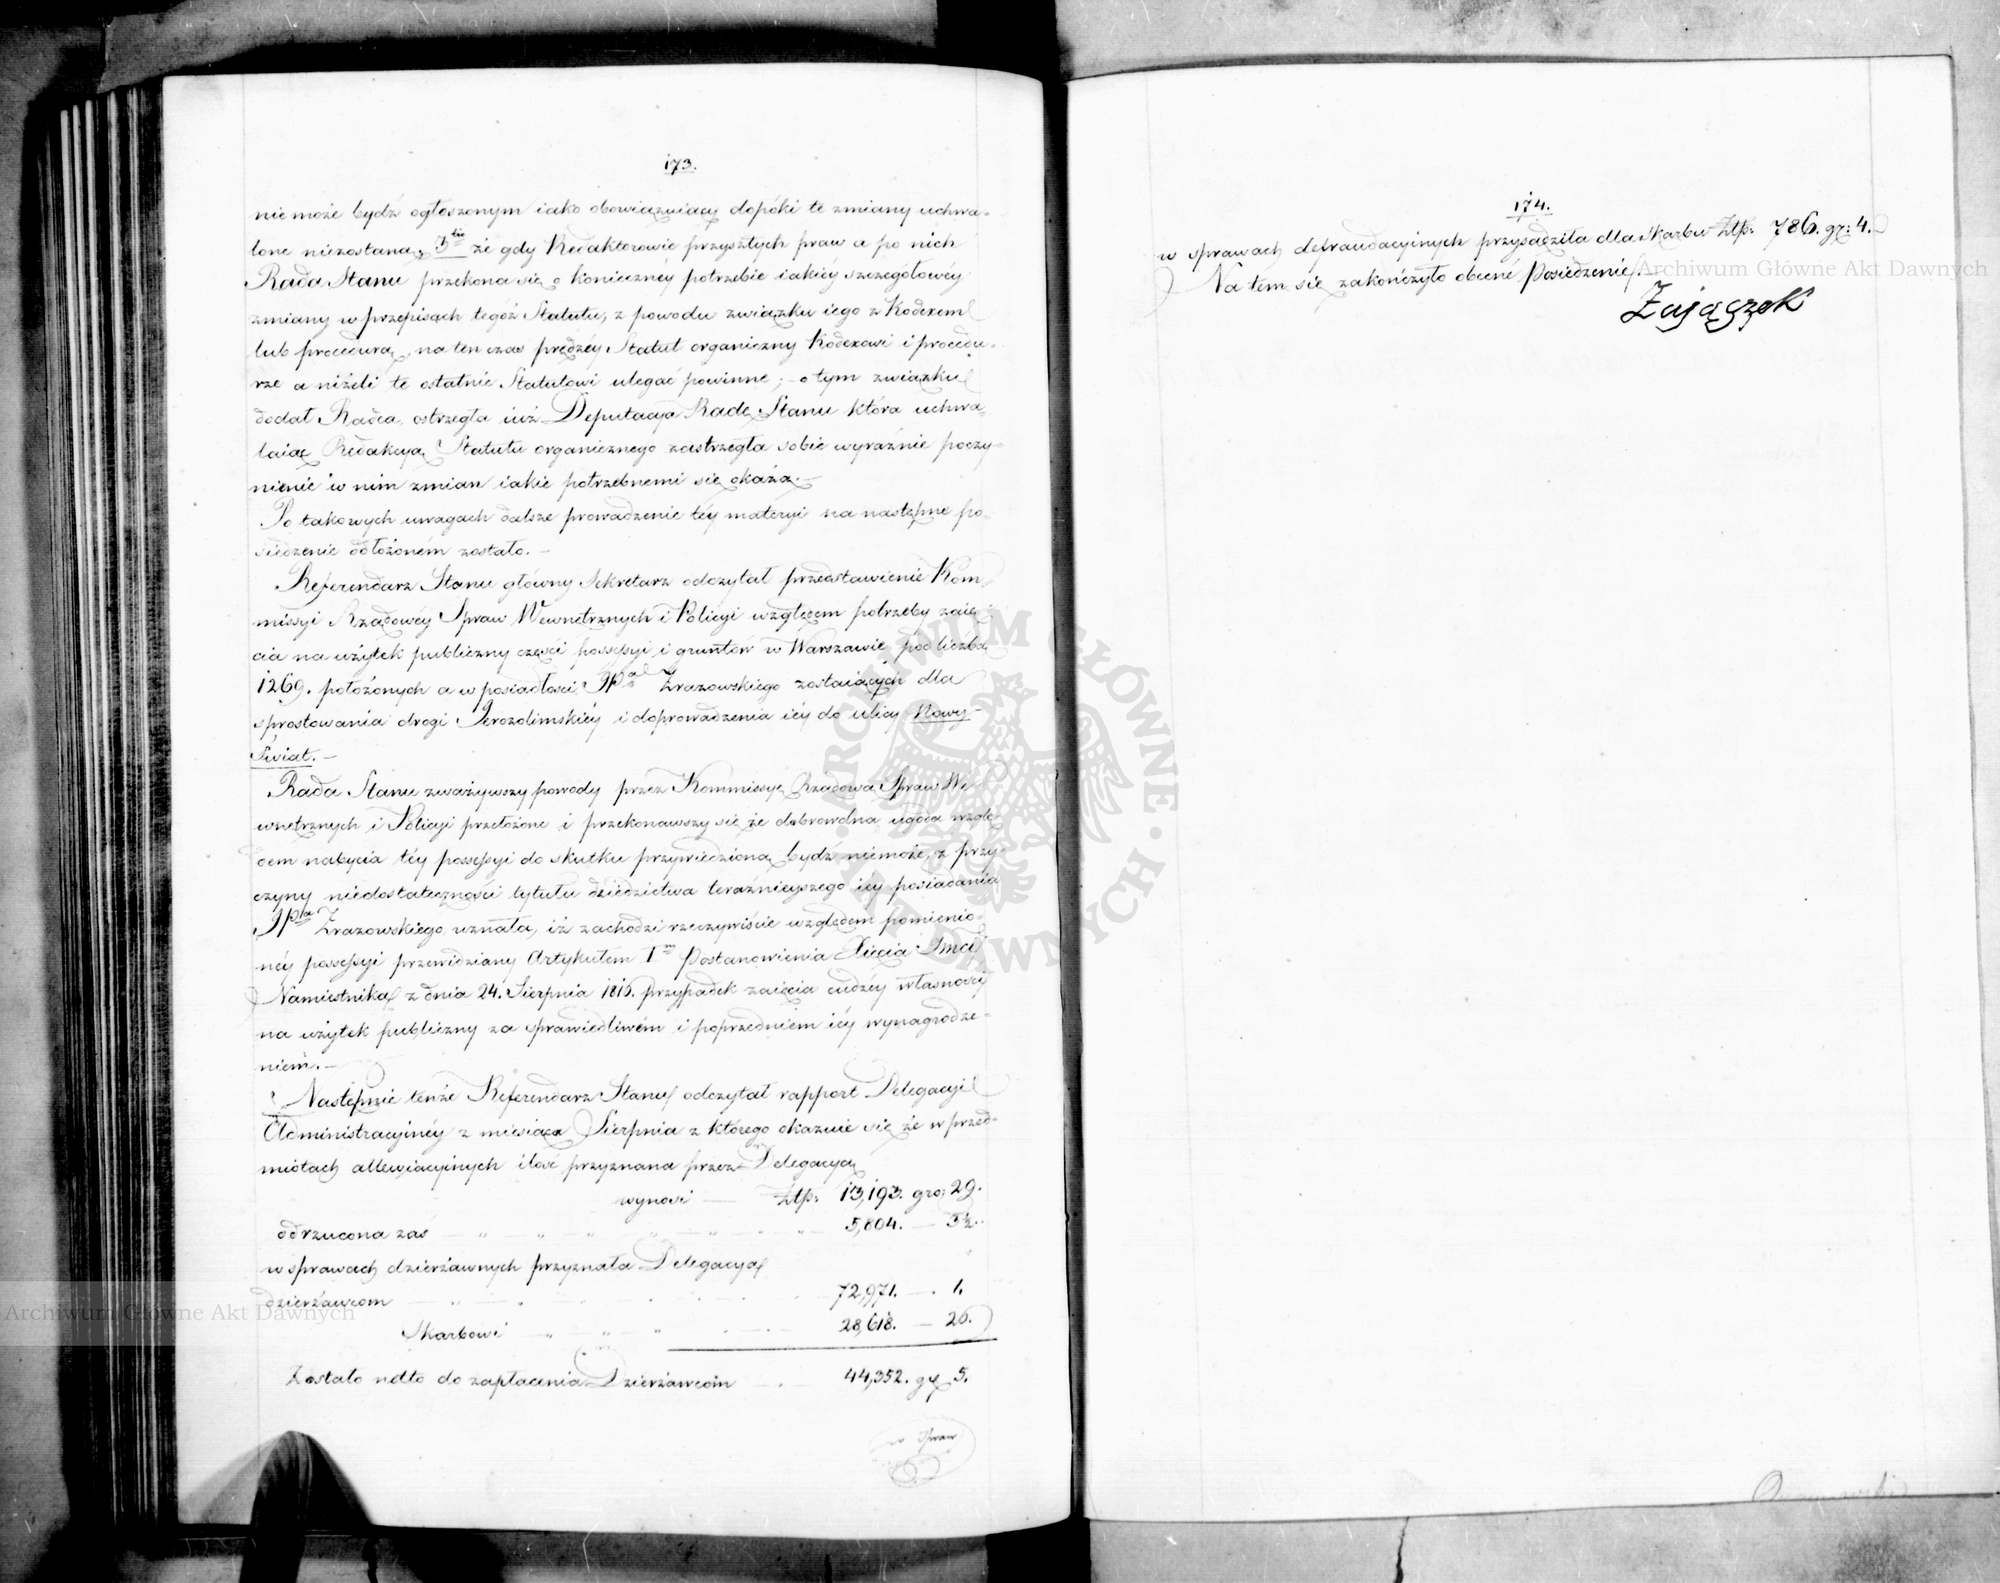 173.
nie może bydź ogłoszonym iako obowiązuiący dopóki te zmiany uchwa-
lone niezostaną, 3tio że gdy Redaktorowie przyszłych praw a po nich
Rada Stanu przekona się o konieczney potrzebie iakiéy szczegołowéy
zmiany w przepisach tegóż Statutu, z powodu związku iego z Kodexem
lub procedurą, na ten czas prędzéy Statut organiczny Kodexowi i procedu-
rze a niżeli te ostatnie Statutowi ulegać powinne; - o tym związku
dodał Radca, ostrzegła iuż Deputacya Radę Stanu która uchwa-
laiąc Redakcyą Statutu organicznego zastrzegła sobie wyraźnie poczy-
nienie w nim zmian iakie potrzebnemi się okażą. -
Po takowych uwagach dalsze prowadzenie téy materyi na następne po-
siedzenie odłożoném zostało. -
Referendarz Stanu główny Sekretarz odczytał przedstawienie Kom-
missyi Rządowéy Spraw Wewnętrznych i Policyi względem potrzeby zaię-
cia na użytek publiczny części possessyi i gruntów w Warszawie pod liczbą
1269. położonych a w posiadłości JPa Zrazowskiego zostaiących dla
sprostowania drogi Jerozolimskiéy i doprowadzenia iéy do ulicy Nowy-
Świat. -
Rada Stanu zważywszy powody przez Kommissyę Rządową Spraw We-
wnętrznych i Policyi przełożone i przekonawszy się że dobrowolna ugoda wzglę-
dem nabycia téy possessyi do skutku przywiedzioną bydź niemoże, z przy-
czyny niedostateczności tytułu dziedzictwa teraźnieyszego iéy posiadania
JPa Zrazowskiego uznała, iż zachodzi rzeczywiście względem pomienio-
néy possessyi przewidziany Artykułem Im Postanowienia Xięcia Jmci
Namiestnika z dnia 24. Sierpnia 1816. przypadek zaięcia cudzéy własności
na użytek publiczny za sprawiedliwém i poprzedniem iéy wynagrodze-
niem. -
Następnie tenże Referendarz Stanu odczytał rapport Delegacyi
Administracyinéy z miesiąca Sierpnia z którego okazuie się że w przed-
miotach allewiacyinych ilość przyznana przez Delegacyą
wynosi — Złp: 13,193. gro: 29.
odrzucona zaś — „ — „ — „ — „ — „ — 5,804. — 3½.
w sprawach dzierżawnych przyznała Delegacya
dzierżawcom — 72,971. — 1.
Skarbowi — 28,618. — 26.
Zostało netto do zapłacenia Dzierżawcom — 44,352. gr 5.
w Spraw
174.
w sprawach defraudacyinych przysądziła dla Skarbu Złp: 786. gr: 4.
Na tem się zakończyło obecné Posiedzenie.
Zajączek
Archiwum Główne Akt Dawnych
Archiwum Główne Akt Dawnych
ARCHIWUM GŁÓWNE AKT DAWNYCH